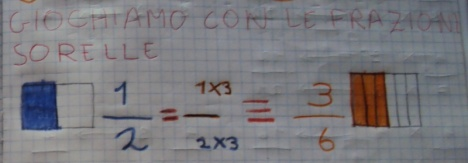 GIOCHIAMO CON LE FRAZIONI
SORELLE
1/2 = 1x3/2x3 = 3/6